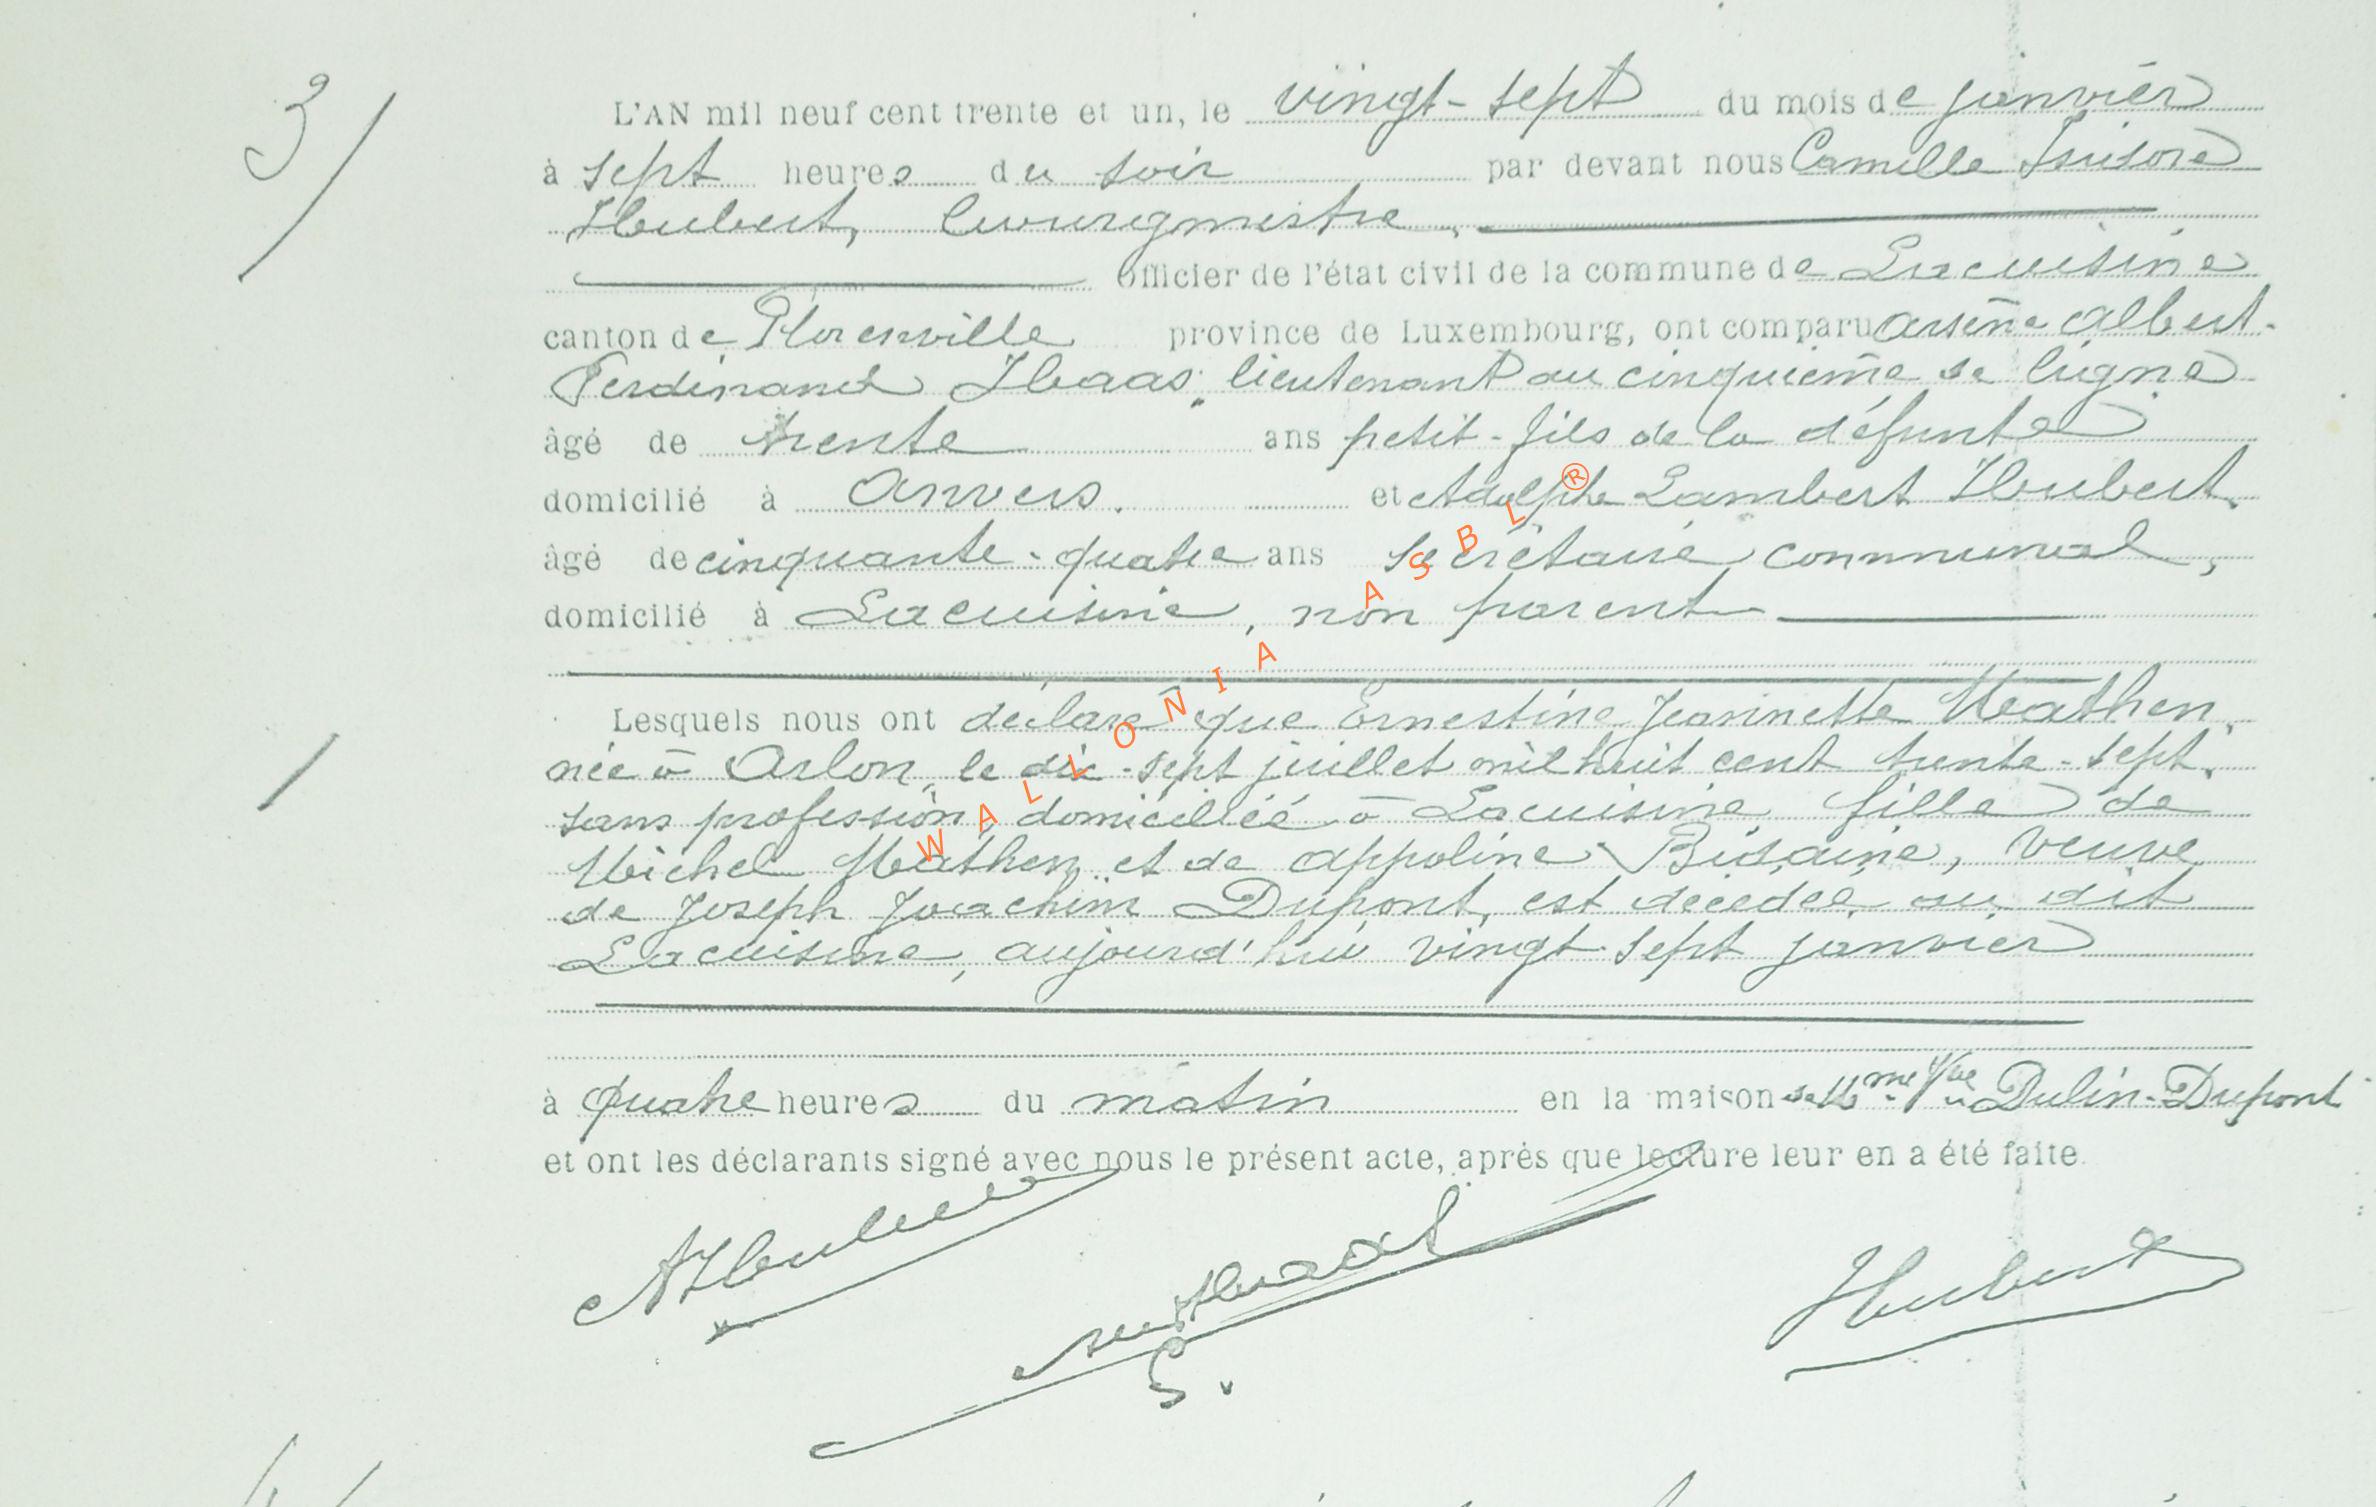 3/
L'AN mil neuf cent trente et un, le vingt-sept du mois de janvier
à sept heures du soir par devant nous Camille Isidore
Hubert, bourgmestre,
officier de l'état civil de la commune de Lacuisine
canton de Florenville province de Luxembourg, ont comparu Arsène Albert-
Ferdinand Haas, lieutenant au cinquième de ligne
âgé de trente ans petit-fils de la défunte
domicilié à Anvers. et Adolphe Lambert Hubert,
âgé de cinquante-quatre ans secrétaire communal,
domicilié à Lacuisine, non parent
Lesquels nous ont déclaré que Ernestine Jeannette Mathen,
née à Arlon, le dix-sept juillet mil huit cent trente-sept,
sans profession, domiciliée à Lacuisine, fille de
Michel Mathen, et de Appoline Bisdaine, veuve
de Joseph Joachim Dupont, est décédée, au dit
Lacuisine, aujourd'hui vingt sept janvier
à quatre heures du matin en la maison de Mme Vve Dulin-Dupont
et ont les déclarants signé avec nous le présent acte, après que lecture leur en a été faite.
AHubert
Hubert
WALLONIA ASBL ®